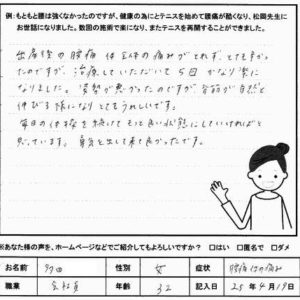 例:もともと腰は強くなかったのですが、健康の為にとテニスを始めて腰痛が酷くなり、松岡先生に
お世話になりました。数回の施術で楽になり、またテニスを再開することができました。
出産後の腰痛 体全体の痛みがとれず、とても辛かっ
たのですが、治療していただいて5回 かなり楽に
なりました。姿勢が悪かったのですが 背筋が自然と
伸びる様になり とてもうれしいです。
毎日の体操を続けて もっと良い状態にしていければと
思っています。 勇気を出して来て良かったです。
※あなた様の声を、ホームページなどでご紹介してもよろしいですか? □はい □匿名で □ダメ
お名前 性別 女 症状 腰痛 体の痛み
職業 会社員 年齢 32 記入日 25年4月19日